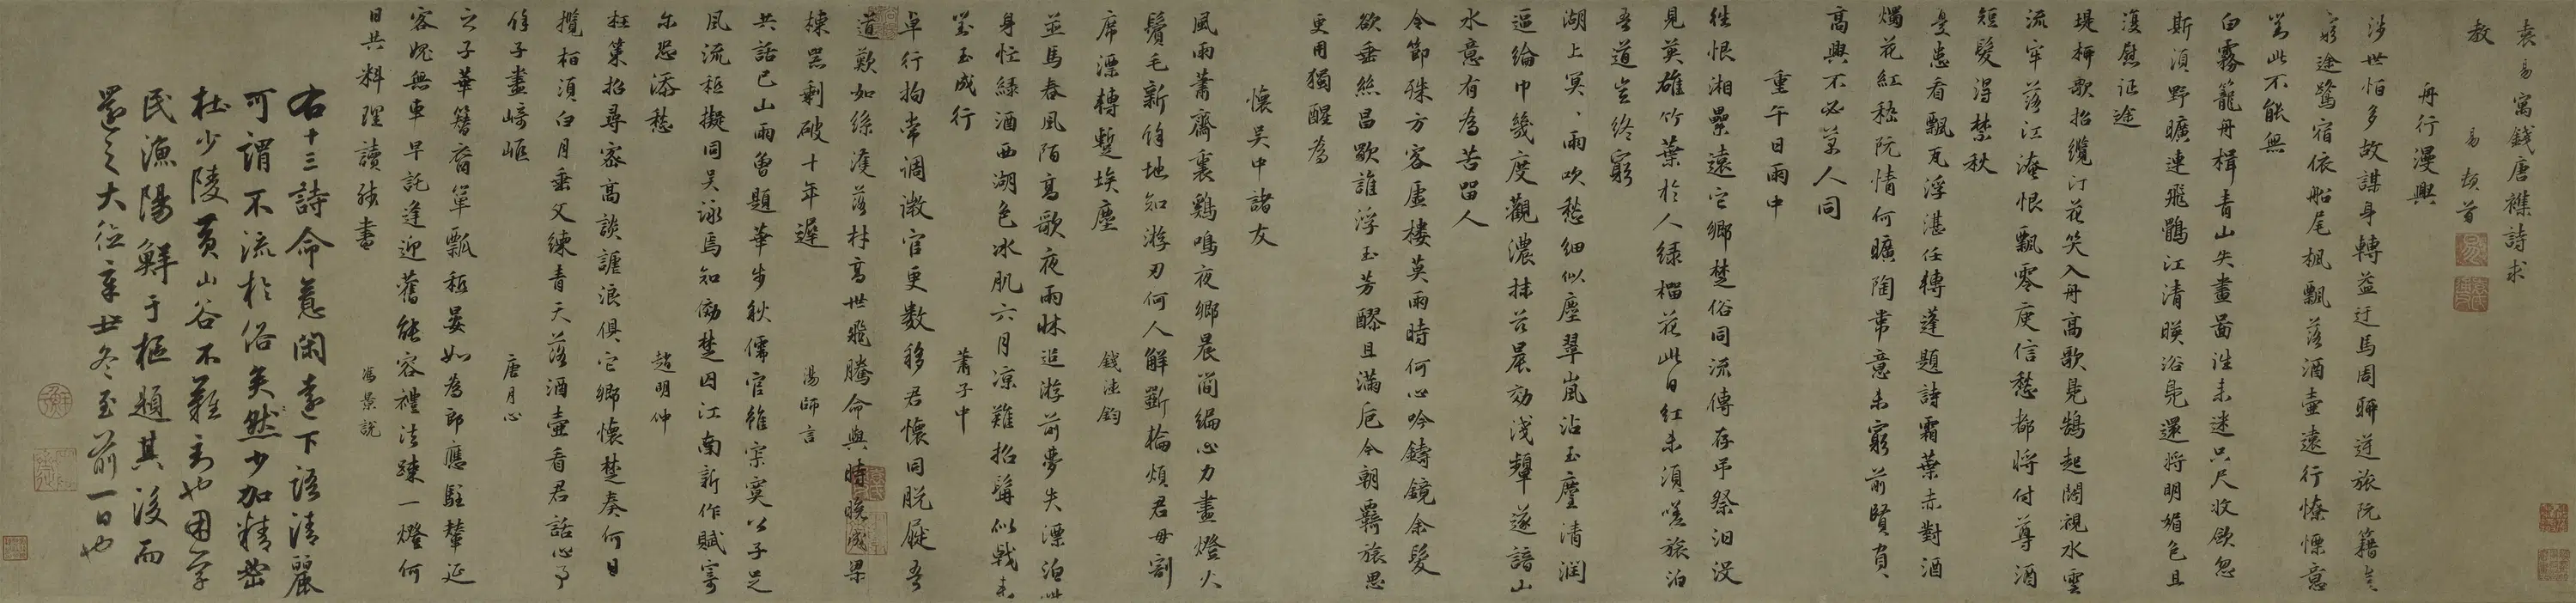 袁易寓錢唐襍詩求
教
易頓首
舟行漫興
涉世怕多故謀身轉益迂馬周聊逆旅阮籍豈
窮途鷺宿依船尾楓飄落酒壺遠行憭慄意
對此不能無
白霧籠舟楫青山失畫啚迷未迷只尺收欲忽
斯湏野曠連飛鶻江清映浴鳬還将明媚色且
復慰征途
堤柳歌招纜汀花笑入舟高歌鳬鵠起闊視水雲
流牢落江淹恨飄零庾信愁都将付尊酒
短髮得禁秋
憂患看飄瓦浮湛任轉蓬題詩霜葉赤對酒
燭花紅嵇阮情何曠陶韋意未窮前賢負
高興不必草人同
重午日雨中
往恨湘纍遠它鄉楚俗同流傳存弔祭汩没
見英雄竹葉於人緑榴花此日紅未須嗟旅泊
吾道豈終窮
湖上冥冥雨吹愁細似塵翠嵐沾玉麈清润
逼綸巾幾度觀濃抹茲晨効淺顰遂諳山
水意有為苦留人
令節殊方客虚樓莫雨時何心吟鑄鏡余髮
欲垂絲昌歜誰浮玉芳醪且滿巵今朝羇旅思
更用獨醒為
懷吴中諸友
風雨蕭齋裏鷄鳴夜鄉晨簡編心力盡燈火
鬢毛新餘地知游刃何人解斲輪煩君毋割
席漂轉蹔埃塵
錢德鈞
並馬春風陌高歌夜雨牀追游前夢失漂泊此
身忙緑酒西湖色冰肌六月凉難招髯似戟未
對玉成行
蕭子中
卓行拘常調微官更数移君懷同脱屣吾
道歎如絲濩落材高世飛騰命與時晚成梁
棟器剩破十年遲
湯師言
共話巴山雨曽題華歩秋儒官雖寂寞公子足
風流秪擬同吴詠焉知効楚囚江南新作賦寄
尓恐添愁
趙明仲
枉策招尋密高談謔浪俱它鄉懷楚奏何日
攬栢湏白月垂文練青天落酒壷看君話心事
餘子盡崎嶇
唐月心
之子華簪裔簞瓢秪晏如為郎應駐輦延
客媿無車早託逢迎舊能容禮法踈一燈何
日共料理讀殘書
馮景說
右十三詩命意閑遠下語清麗
可謂不流於俗矣然少加精密
杜少陵黄山谷不難到也困學
民漁陽鮮于樞題其後而
還之大德辛丑冬至前一日也